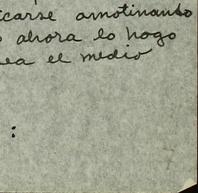 icarse amotinando
o ahora lo hago
sea el medio
: